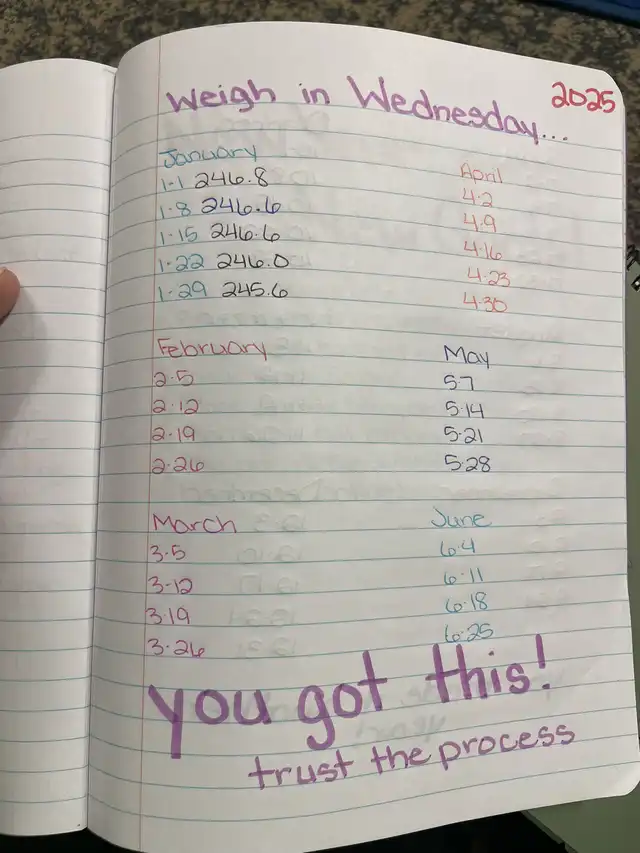 Weigh in Wednesday...
2025
January
1-1 246.8
1-8 246.6
1-15 246.6
1-22 246.0
1-29 245.6
February
2-5
2-12
2-19
2-26
March
3-5
3-12
3-19
3-26
April
4-2
4-9
4-16
4-23
4-30
May
5-7
5-14
5-21
5-28
June
6-4
6-11
6-18
6-25
you got this!
trust the process